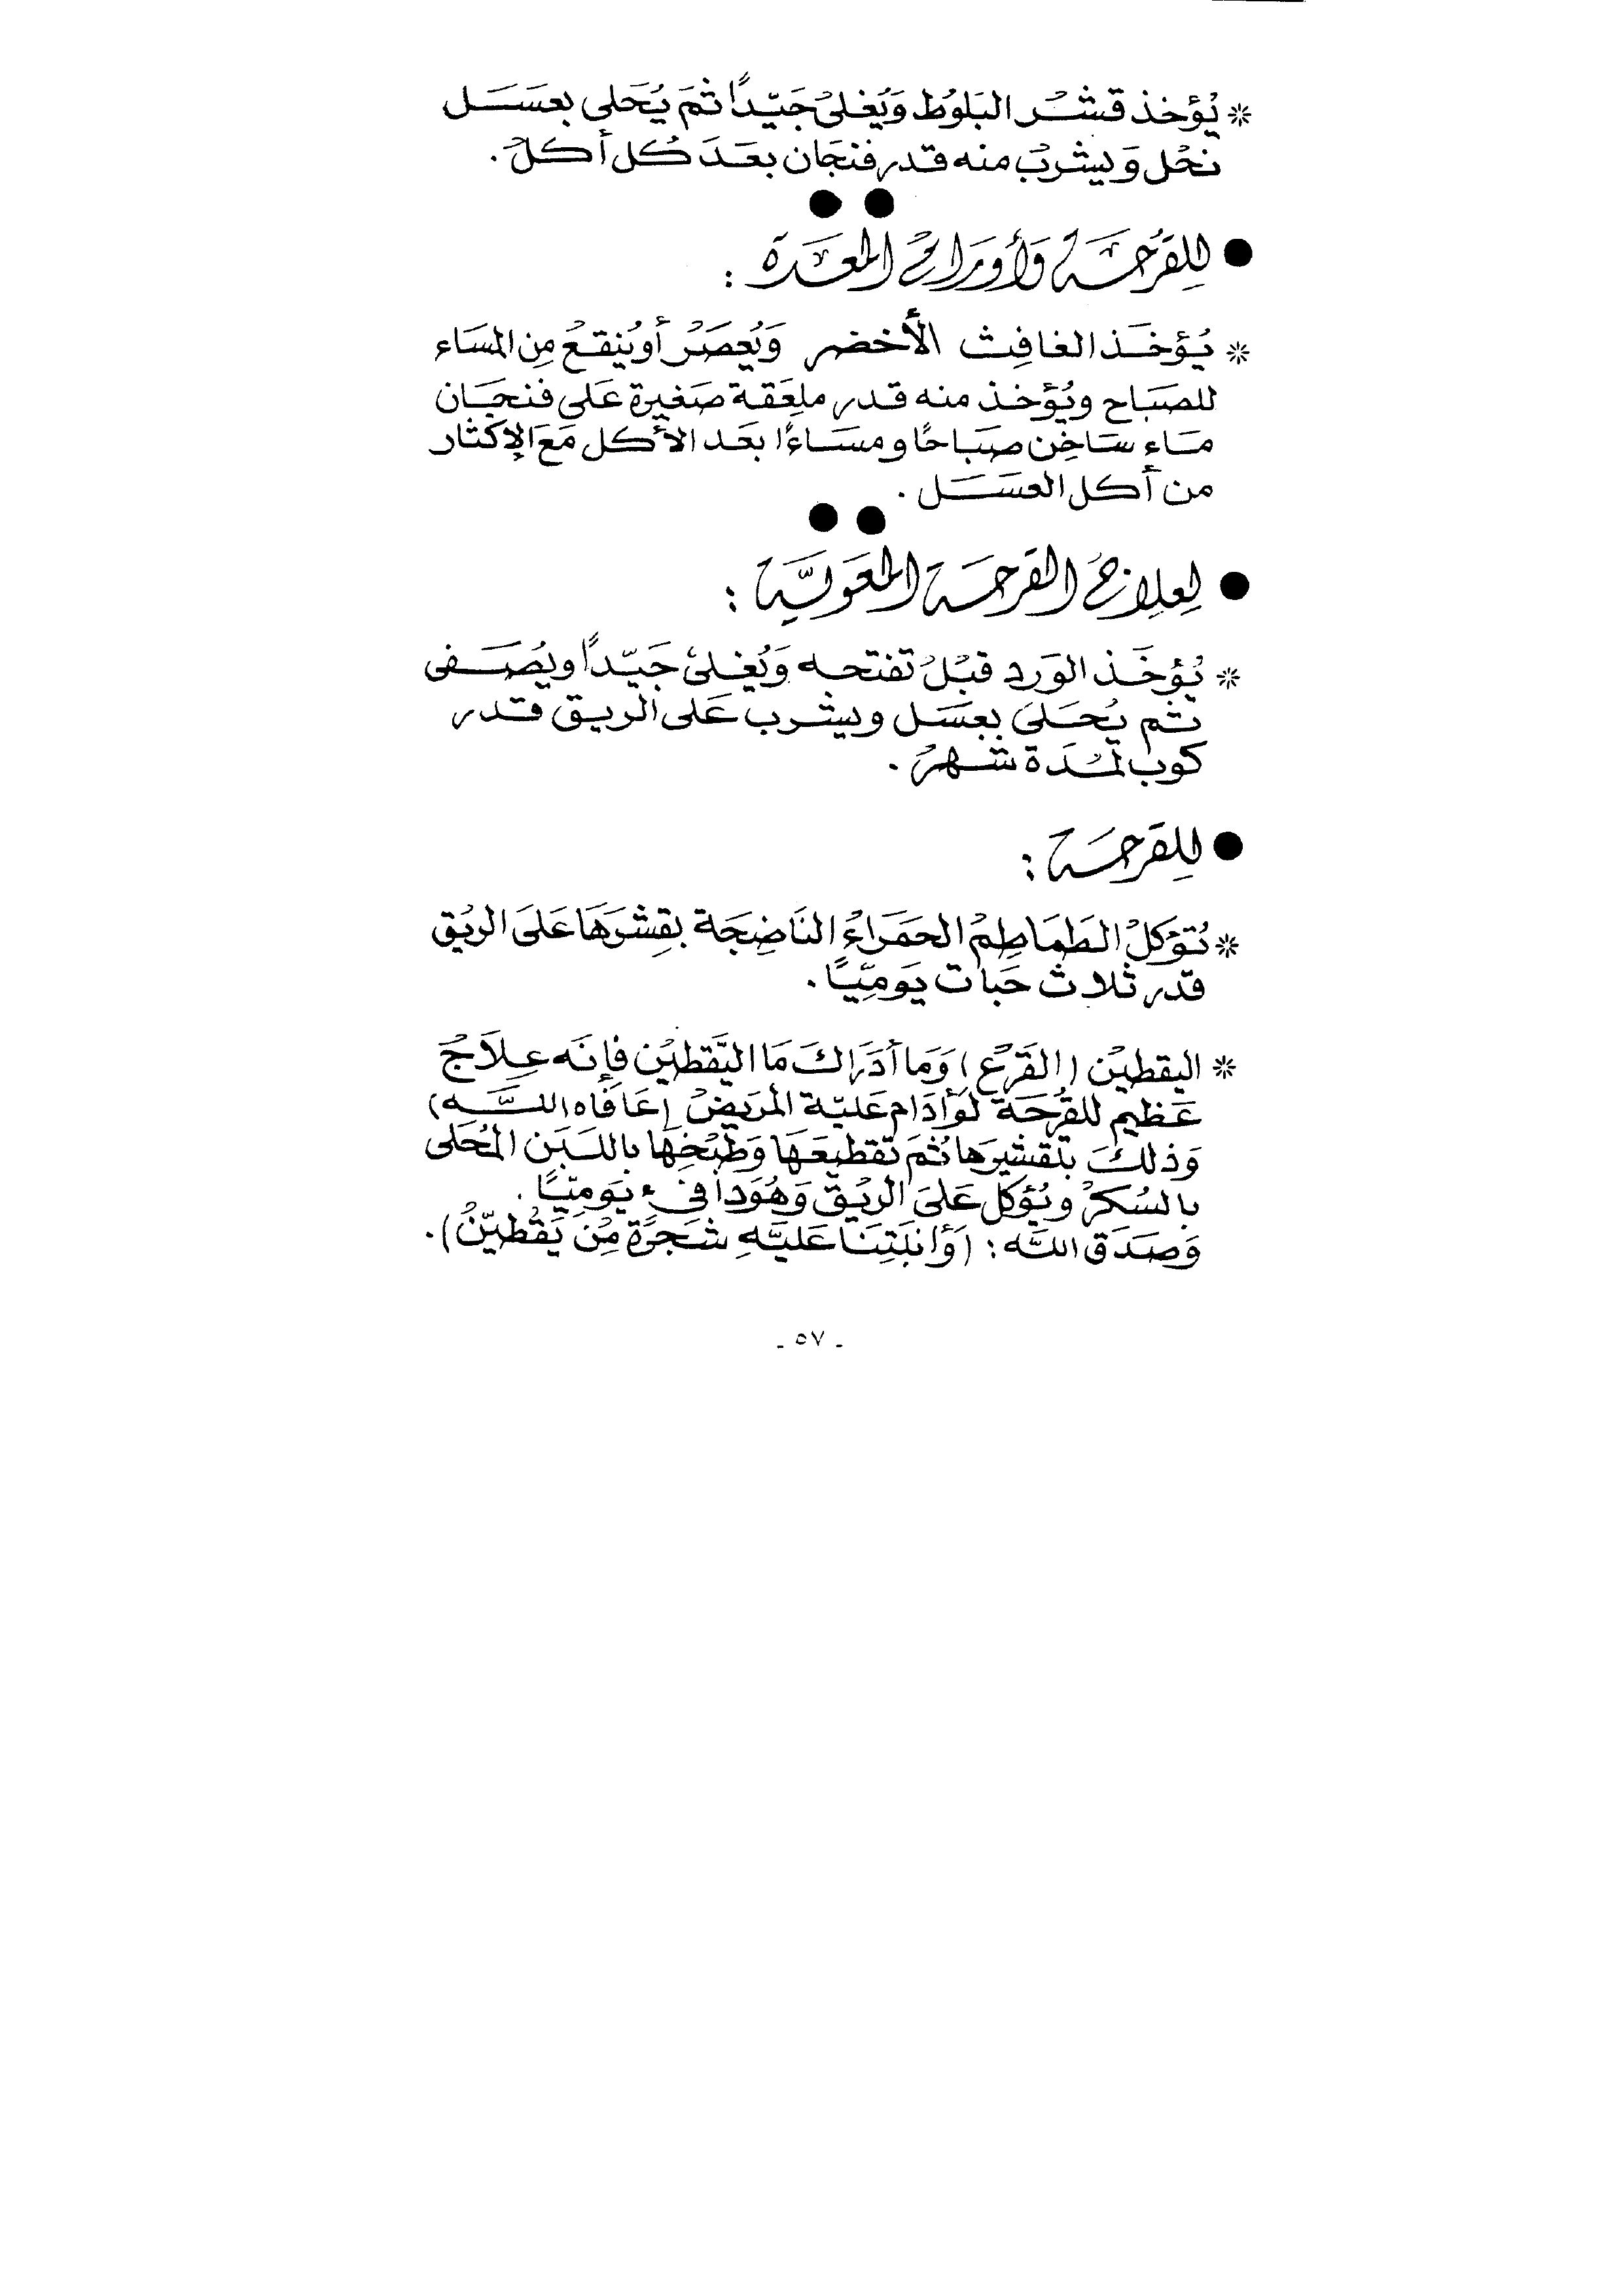 * يُؤخذ قشْر البَلوُط وَيُغلىْ جَيّدًا ثمَ يُحَلى بعسَل
نحْل وَيشربْ منه قدر فنجَان بعَدَ كُل أكلْ.
● للِقرُحَة وَأورَامْ المعَدَة :
* يُؤخَذ الغافِث الأخضر وَيُعصَرُ أو يُنقعُ مِن المسَاء
للصَبَاح ويُؤخذ منه قدر ملِعَقة صَغيرة عَلى فنجَان
مَاء سَاخِن صبَاحًا ومسَاءًا بعَد الأكل مَعَ الإكثار
من أكل العسَل .
● لِعلِاجْ القرحَة المعَوليَّة :
* يُؤخَذ الوَرد قبْلُ تفتحه وَيُغلىْ جَيّدًا ويُصَفى
ثم يُحَلىَ بعسَل ويشرب عَلى الريق قدر
كوب لمُدَة شهرْ .
● للِقرحَة :
* تُؤكلْ الطَمَاطِمْ الحمَرَاءُ النَاضِجَة بقِشرَهَا عَلىَ الريْق
قدر ثلاث حَبات يَومِيًّا.
* اليقطيْن (القَرْع) وَمَا أدَرَاكَ مَا اليّقطيْن فإنَه علِاَجْ
عَظيم للقُرحَة لَوْ أدَام عَليّة المرَيضْ (عَافاه اللَّه)
وَذلكَ بتقشيرَها ثُمَ تقطيعَهَا وَطبْخِهَا باللبَن المُحَلى
بالسُكرْ ويُؤكل عَلىَ الريْق وَهُوَ دافىء يَومِيًّا .
وَصدَق اللَّه : (وَأنبَتِنَا عَليَّهِ شَجَرًة مِّن يَقُطيّنْ).
ـ ٥٧ ـ